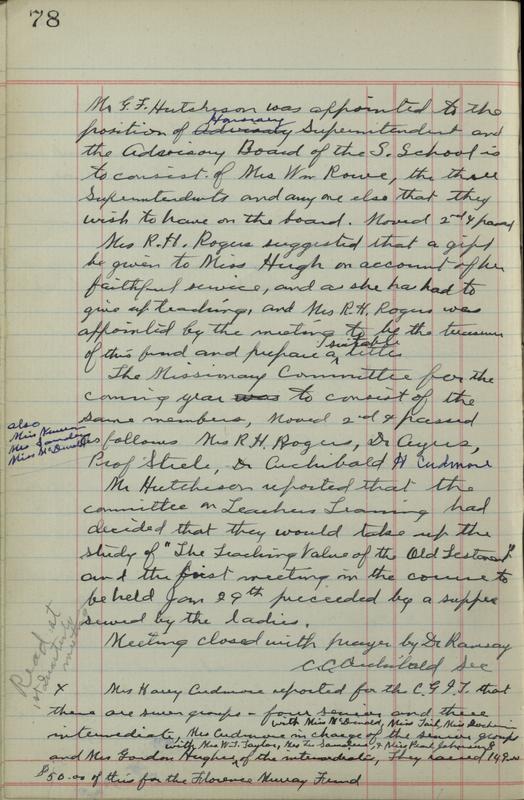 78
Mr G.F. Hutcheson was appointed to the
Honorary
position of Advisory Superintendent and
the Advisory Board of the S. School is
to consist of Mrs Wm Rowe, the three
Superintendents and any one else that they
wish to have on the board. Moved 2nd & passed
Mrs R.H. Rogers suggested that a gift
be given to Miss Hugh on account of her
faithful service, and as she has had to
give up teaching, and Mrs R.H. Rogers was
appointed by the meeting to be the treasurer
suitable
of this fund and prepare a letter
The Missionary Committee for the
coming year was to consist of the
same members, Moved 2nd & passed
as follows Mrs R.H. Rogers, Dr Ayers,
also
Miss
Mrs Sanders
Miss McDonald
Prof Steele, Dr Archibald H Cudmore
Mr Hutcheson reported that the
committee on Teachers Training had
decided that they would take up the
study of "The Teaching Value of the Old Testament"
and the first meeting in the course to
be held Jan 29th preceeded by a supper
served by the ladies.
Meeting closed with prayer by Dr Ramsay
C.C. Archibald Sec
Read at
1st Quarterly
meeting
x Mrs Harry Cudmore reported for the C.G.I.T. that
there are seven groups - four senior and three
with Miss McDonald, Miss Tait, Miss
intermediate, Mrs Cudmore in charge of the senior groups
with Mrs W.J. Taylor, Mrs Sanders, & Miss Pearl Johnson
and Mrs Gordon Hughes, of the intermediate, They raised 149
$50.00 of this for the Florence Murray Fund